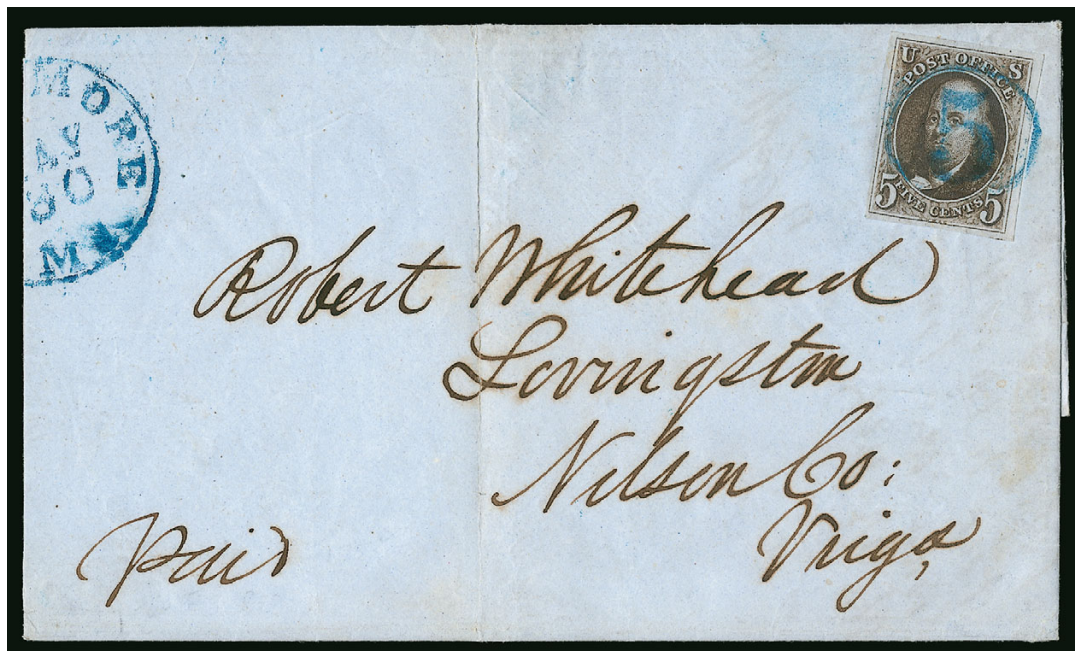 MORE
AY
30
M
U S
POST OFFICE
5
5 FIVE CENTS 5
Robert Whitehead
Lovingston
Nelson Co:
Virga,
Paid